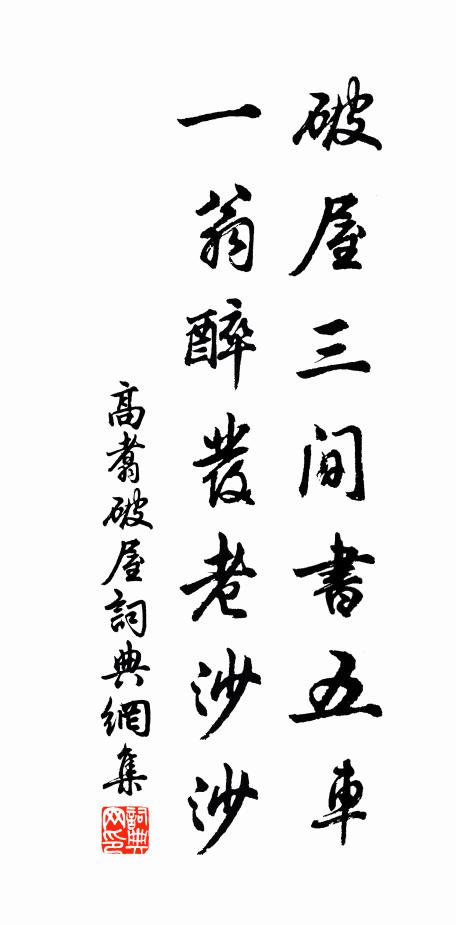 破屋三间書五車
一翁醉發老沙沙
高翥破屋詞典網集
詞典网印